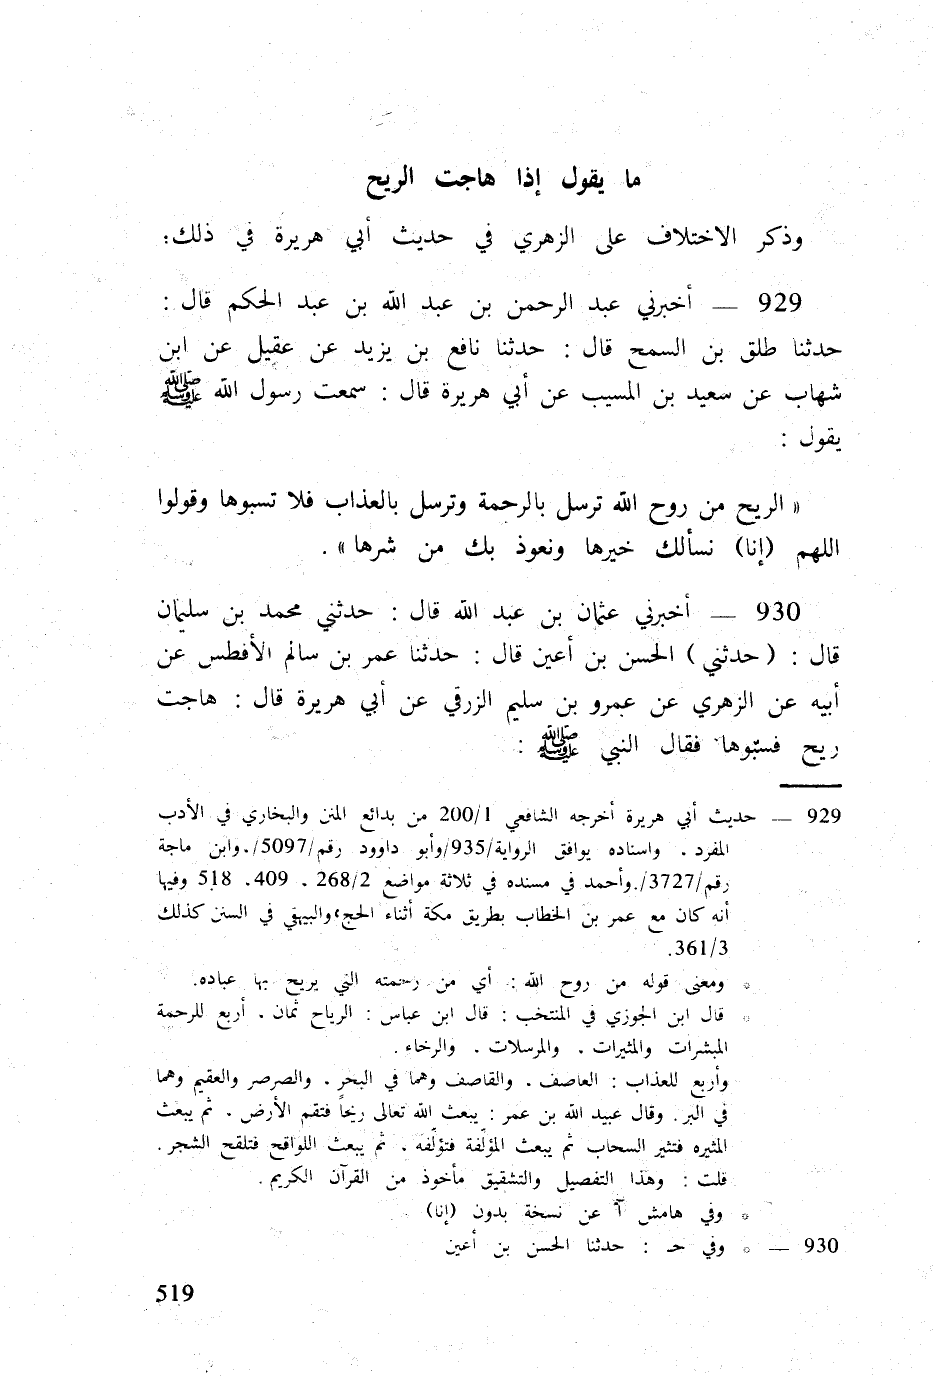 ما يقول إذا هاجت الريح
وذكر الاختلاف على الزهري في حديث أبي هريرة في ذلك:
929 — أخبرني عبد الرحمن بن عبد الله بن عبد الحكم قال :
حدثنا طلق بن السمح قال : حدثنا نافع بن يزيد عن عقيل عن ابن
شهاب عن سعيد بن المسيب عن أبي هريرة قال : سمعت رسول الله ﷺ
يقول :
« الريح من روح الله ترسل بالرحمة وترسل بالعذاب فلا تسبوها وقولوا
اللهم (إنا) نسألك خيرها ونعوذ بك من شرها » .
930 — أخبرني عثمان بن عبد الله قال : حدثني محمد بن سليمان
قال : ( حدثني ) الحسن بن أعين قال : حدثنا عمر بن سالم الأفطس عن
أبيه عن الزهري عن عمرو بن سليم الزرقي عن أبي هريرة قال : هاجت
ريح فسبّوها فقال النبي ﷺ :
929 — حديث أبي هريرة أخرجه الشافعي 200/1 من بدائع المنن والبخاري في الأدب
المفرد . واسناده يوافق الرواية/935/وأبو داوود رقم/5097/.وابن ماجة
رقم/3727/.وأحمد في مسنده في ثلاثة مواضع 268/2 . 409. 518 وفيها
أنه كان مع عمر بن الخطاب بطريق مكة أثناء الحج؛والبيهقي في السنن كذلك
361/3.
* ومعنى قوله من روح الله : أي من رحمته التي يريح بها عباده.
* قال ابن الجوزي في المنتخب : قال ابن عباس : الرياح ثمان . أربع للرحمة
المبشرات والمثيرات . والمرسلات . والرخاء .
وأربع للعذاب : العاصف . والقاصف وهما في البحر . والصرصر والعقيم وهما
في البر . وقال عبيد الله بن عمر : يبعث الله تعالى ريحاً فتقم الأرض . ثم يبعث
المثيره فتثير السحاب ثم يبعث المؤلفة فتؤلفه . ثم يبعث اللواقح فتلقح الشجر .
قلت : وهذا التفصيل والتشقيق مأخوذ من القرآن الكريم .
* وفي هامش آ عن نسخة بدون (إنا)
930 — * وفي حـ : حدثنا الحسن بن أعين
519